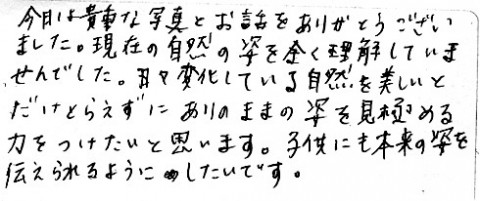 今日は貴重な写真とお話をありがとうござい
ました。現在の自然の姿を全く理解していま
せんでした。日々変化している自然を美しいと
だけとらえずにありのままの姿を見極める
力をつけたいと思います。子供にも本来の姿を
伝えられるようにしたいです。